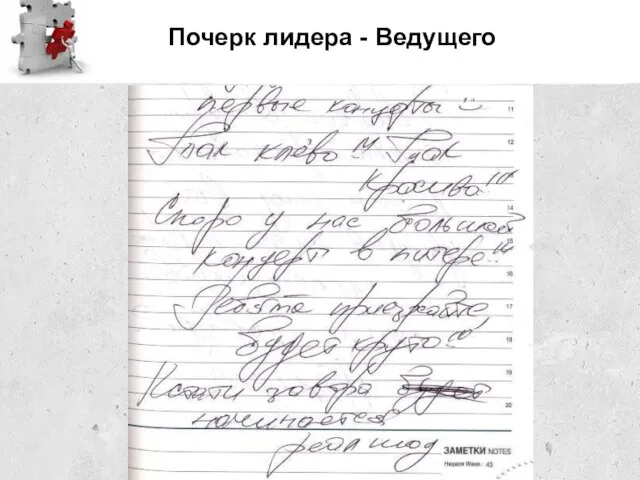 Почерк лидера - Ведущего
первые концерты
11
Так клёво!! Так
12
красиво!!
14
Скоро у нас большой
15
концерт в питере!!
16
Ребята приезжайте,
17
будет круто!!
18
Кстати завтра будет
19
20
начинается
реал шоу
ЗАМЕТКИ NOTES
Неделя Week: 45